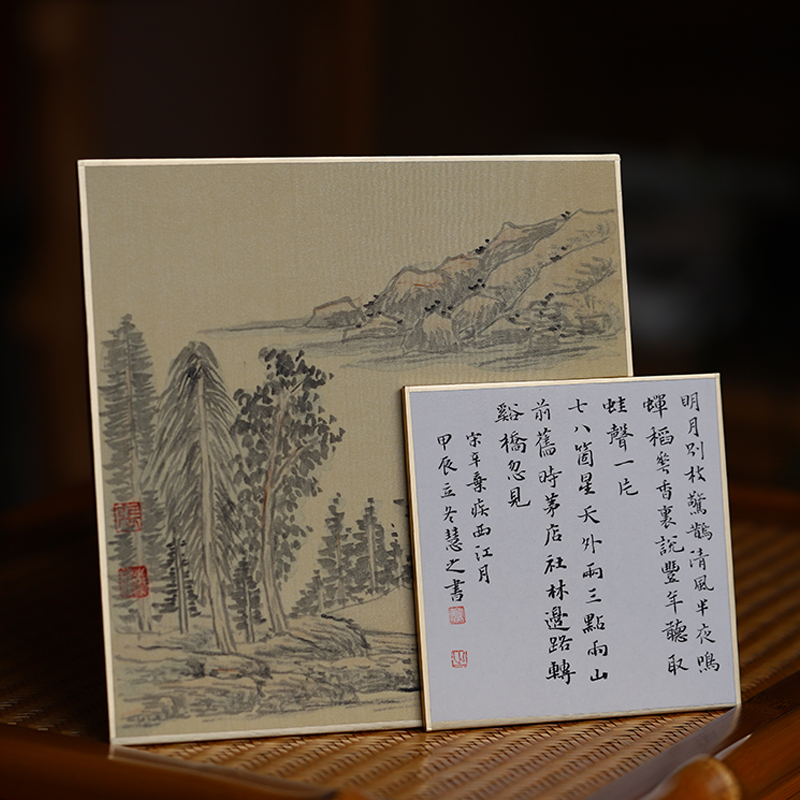 明月別枝驚鵲清風半夜鳴
蟬稻華香裏說豐年聽取
蛙聲一片
七八箇星天外兩三點雨山
前舊時茅店社林邊路轉
谿橋忽見
宋辛棄疾西江月
甲辰立冬慧之書